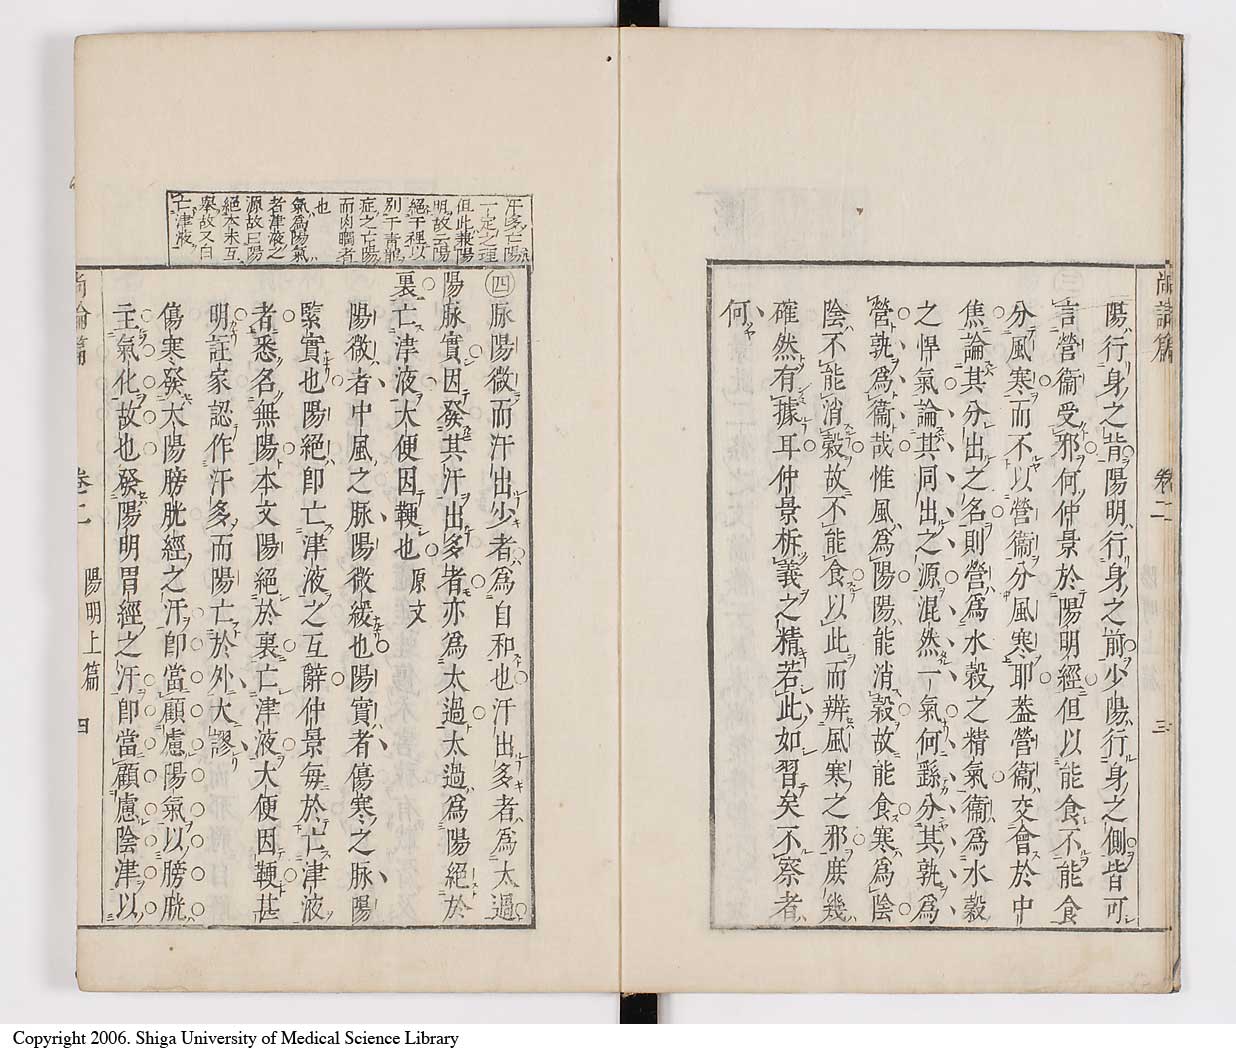 尚論篇 卷二 三
陽行身之背陽明行身之前少陽行身之側皆可
言營衞受邪何仲景於陽明經但以能食不能食
分風寒而不以營衞分風寒耶葢營衞交會於中
焦論其分出之名則營爲水榖之精氣衞爲水榖
之悍氣論其同出之源混然一氣何繇分其孰爲
營孰爲衞哉惟風爲陽陽能消榖故能食寒爲陰
陰不能消榖故不能食以此而辨風寒之邪庶幾
確然有據耳仲景析義之精若此如習矣不察者
何
汗多亡陽
一定之理
但此兼陽
明故云陽
絕于裡以
別于靑龍
症之亡陽
而肉瞤者
也
氣爲陽氣
者津液之
源故曰陽
絕本末互
舉故又曰
亡津液
㊃脉陽微而汗出少者爲自和也汗出多者爲太過
陽脉實因發其汗出多者亦爲太過太過爲陽絕於
裏亡津液大便因鞕也原文
陽微者中風之脉陽微緩也陽實者傷寒之脉陽
緊實也陽絕卽亡津液之互辭仲景每於亡津液
者悉名無陽本文陽絕於裏亡津液大便因鞕甚
明註家認作汗多而陽亡於外大謬
傷寒發太陽膀胱經之汗卽當顧慮陽氣以膀胱
主氣化故也發陽明胃經之汗卽當顧慮陰津以
尚論篇 卷二 陽明上篇 四
Copyright 2006. Shiga University of Medical Science Library